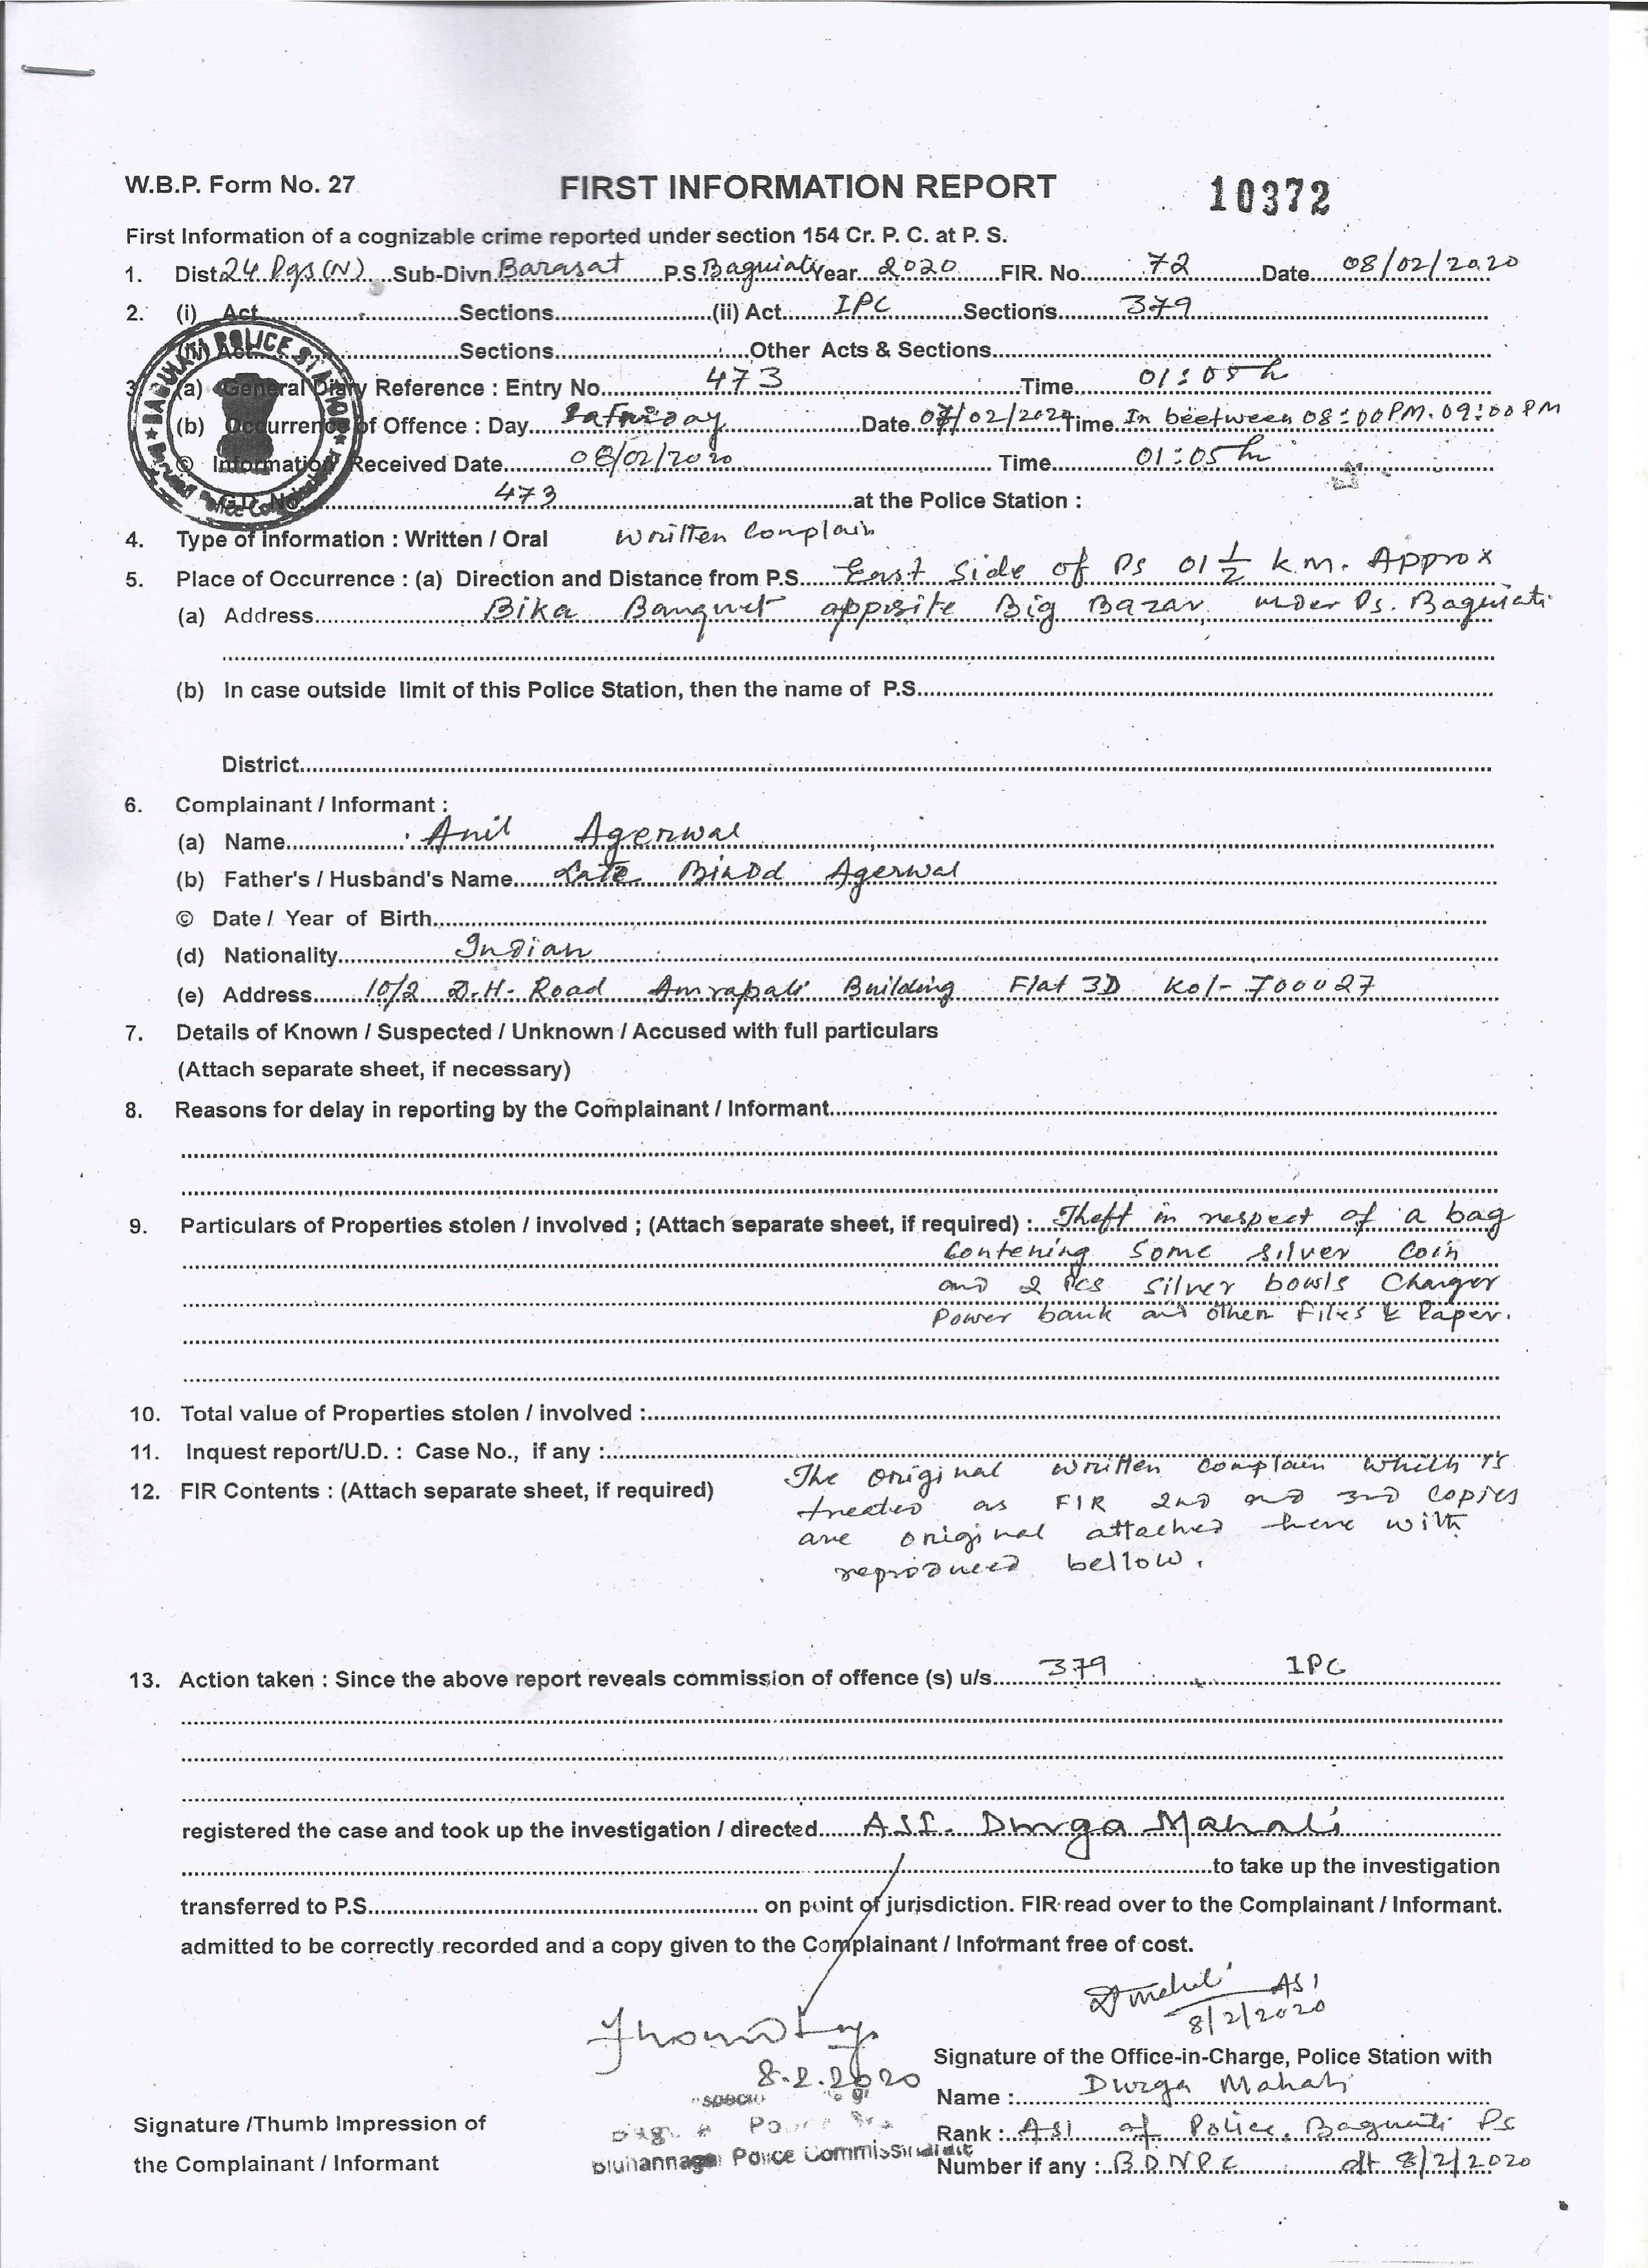 W.B.P. Form No. 27 FIRST INFORMATION REPORT 10372
First Information of a cognizable crime reported under section 154 Cr. P. C. at P. S.
1. Dist. 24 Pgs (N) Sub-Divn Barasat P.S. Baguiati Year 2020 FIR. No. 72 Date 08/02/2020
2. (i) Act Sections (ii) Act IPC Sections 379
Sections Other Acts & Sections
3. (a) General Diary Reference : Entry No. 473 Time 01:05 h
(b) Occurrence of Offence : Day Date 07/02/2020 Time In beetween 08:00PM. 09:00PM
© Information Received Date 08/02/2020 Time 01:05 h
473 at the Police Station :
4. Type of Information : Written / Oral Written Complain
5. Place of Occurrence : (a) Direction and Distance from P.S. East Side of Ps 01 ½ k.m. Approx
(a) Address Bika Banquet opposite Big Bazar under Ps. Baguiati
(b) In case outside limit of this Police Station, then the name of P.S.
District
6. Complainant / Informant :
(a) Name Anil Agerwal
(b) Father's / Husband's Name Late Binod Agerwal
© Date / Year of Birth
(d) Nationality Indian
(e) Address 10/2 D.H. Road Amrapali Building Flat 3D Kol-700027
7. Details of Known / Suspected / Unknown / Accused with full particulars
(Attach separate sheet, if necessary)
8. Reasons for delay in reporting by the Complainant / Informant
9. Particulars of Properties stolen / involved ; (Attach separate sheet, if required) : Theft in respect of a bag
Contening Some silver Coin
and 2 Pcs Silver bowls Charger
Power bank and other Files & Paper.
10. Total value of Properties stolen / involved :
11. Inquest report/U.D. : Case No., if any :
12. FIR Contents : (Attach separate sheet, if required) The original written Complain which is
treated as FIR 2nd and 3rd Copies
are original attached here with
reproduced bellow.
13. Action taken : Since the above report reveals commission of offence (s) u/s. 379 IPC
registered the case and took up the investigation / directed ASI. Durga Mahali
to take up the investigation
transferred to P.S. on point of jurisdiction. FIR read over to the Complainant / Informant.
admitted to be correctly recorded and a copy given to the Complainant / Informant free of cost.
ASI
8/2/2020
8.2.2020
Signature of the Office-in-Charge, Police Station with
Name : Durga Mahali
Signature /Thumb Impression of
Rank : ASI of Police, Baguiati PS
the Complainant / Informant
Police Commissionerate
Number if any : BDNPC dt 8/2/2020